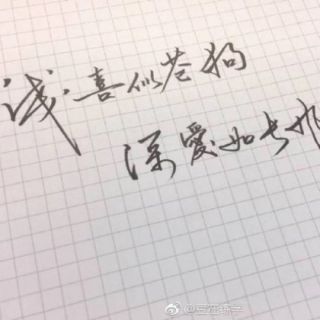 浅喜似苍狗
深愛如长风